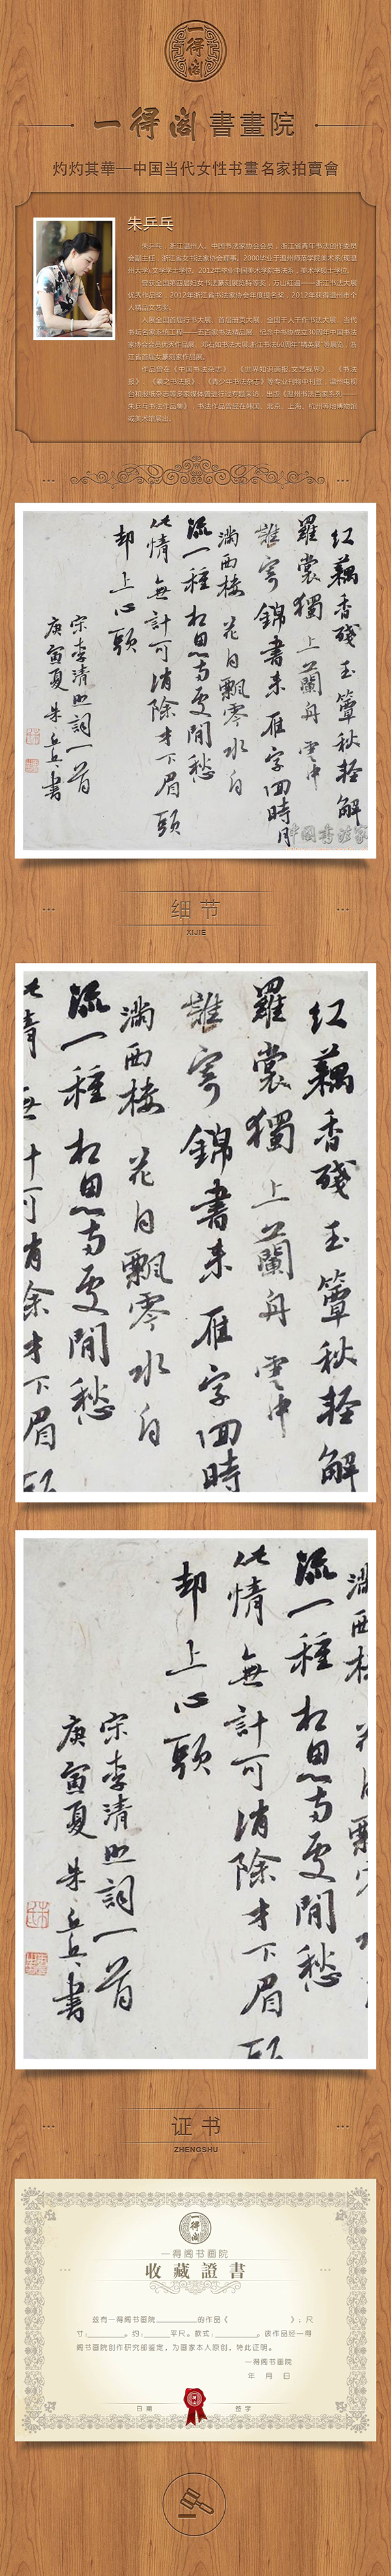 一得阁
一得阁書畫院
灼灼其華—中国当代女性书畫名家拍賣會
朱乒乓
朱乒乓，浙江温州人。中国书法家协会会员，浙江省青年书法创作委员
会副主任，浙江省女书法家协会理事。2000毕业于温州师范学院美术系(现温
州大学),文学学士学位。2012年毕业中国美术学院书法系，美术学硕士学位。
曾获全国第四届妇女书法篆刻展览特等奖，方山红遍——浙江书法大展
优秀作品奖，2012年浙江省书法家协会年度提名奖，2012年获得温州市个
人精品文艺奖。
入展全国首届行书大展、首届册页大展、全国千人千作书法大展、当代
书坛名家系统工程——五百家书法精品展、纪念中书协成立30周年中国书法
家协会会员优秀作品展、邓石如书法大展,浙江书法60周年“精英展”等展览，浙
江省首届女篆刻家作品展。
作品曾在《中国书法杂志》、《世界知识画报.文艺视界》、《书法
报》、《羲之书法报》、《青少年书法杂志》等专业刊物中刊登，温州电视
台和报纸杂志等多家媒体曾进行过专题采访，出版《温州书法百家系列——
朱乒乓书法作品集》，书法作品曾经在韩国、北京、上海、杭州等地博物馆
或美术馆展出。
红藕香殘玉簟秋輕解
羅裳獨上蘭舟雲中
誰寄錦書来雁字回時月
滿西楼花自飄零水自
流一種相思两处閒愁
此情無計可消除才下眉頭
却上心頭
宋李清照詞一首
庚寅夏朱乒乓書
中國書法家
细节
XIJIE
红藕香殘玉簟秋輕解
羅裳獨上蘭舟雲中
誰寄錦書来雁字回時
滿西楼花自飄零水自
流一種相思两处閒愁
流一種相思两处閒愁
此情無計可消除才下眉
却上心頭
宋李清照詞一首
庚寅夏朱乒乓書
证书
ZHENGSHU
一得阁
一得阁书画院
收藏證書
兹有一得阁书画院________的作品《________》；尺
寸：________。约：________平尺。款式：________。该作品经一得
阁书画院创作研究部鉴定，为画家本人原创，特此证明。
一得阁书画院
年 月 日
日期 签字